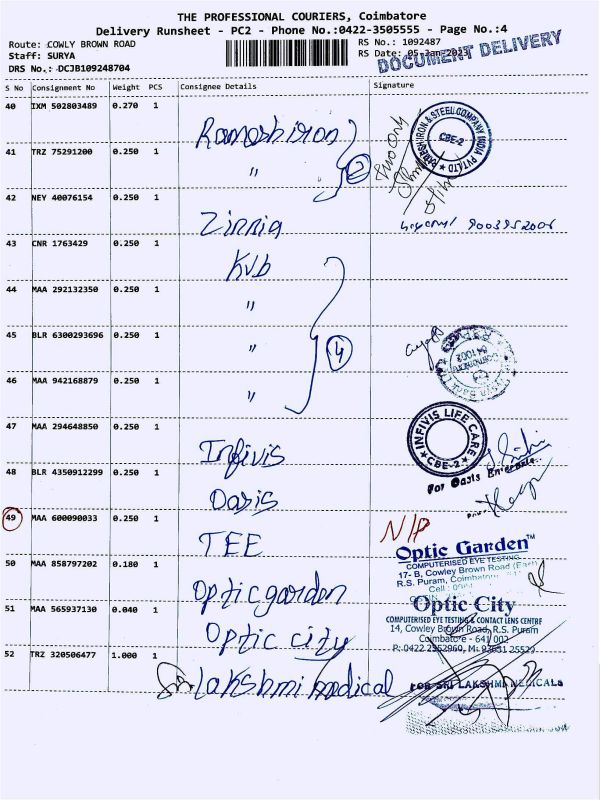 THE PROFESSIONAL COURIERS, Coimbatore
Delivery Runsheet - PC2 - Phone No.:0422-3505555 - Page No.:4
Route: COWLY BROWN ROAD
Staff: SURYA
DRS No.: DCJB109248704
RS No.: 1092487
RS Date: 05-Jan-2023
DOCUMENT DELIVERY
S No Consignment No Weight PCS Consignee Details Signature
40 IXM 502803489 0.270 1
BABOSHIRON & STEEL COMPANY INDIA PVT LTD
CBE-2
41 TRZ 75291200 0.250 1 "
2
two only
42 NEY 40076154 0.250 1 Zinnia
9003952006
43 CNR 1763429 0.250 1 KVb
44 MAA 292132350 0.250 1 "
45 BLR 6300293696 0.250 1 "
4
641002
46 MAA 942168879 0.250 1 "
47 MAA 294648850 0.250 1 Infivis
INFIVIS LIFE CARE
CBE-2
48 BLR 4350912299 0.250 1 Oasis
For Oasis
49 MAA 600090033 0.250 1 TEE
N/P
50 MAA 858797202 0.180 1 Optic garden
Optic Garden™
COMPUTERISED EYE TESTING
17- B, Cowley Brown Road (East)
R.S. Puram,
Cell :
51 MAA 565937130 0.040 1 Optic city
Optic City
COMPUTERISED EYE TESTING & CONTACT LENS CENTRE
14, Cowley Brown Road, R.S. Puram
Coimbatore - 641 002
P:0422 2552960, M:
52 TRZ 320506477 1.000 1 Sri lakshmi medical
FOR SRI LAKSHMI MEDICALS